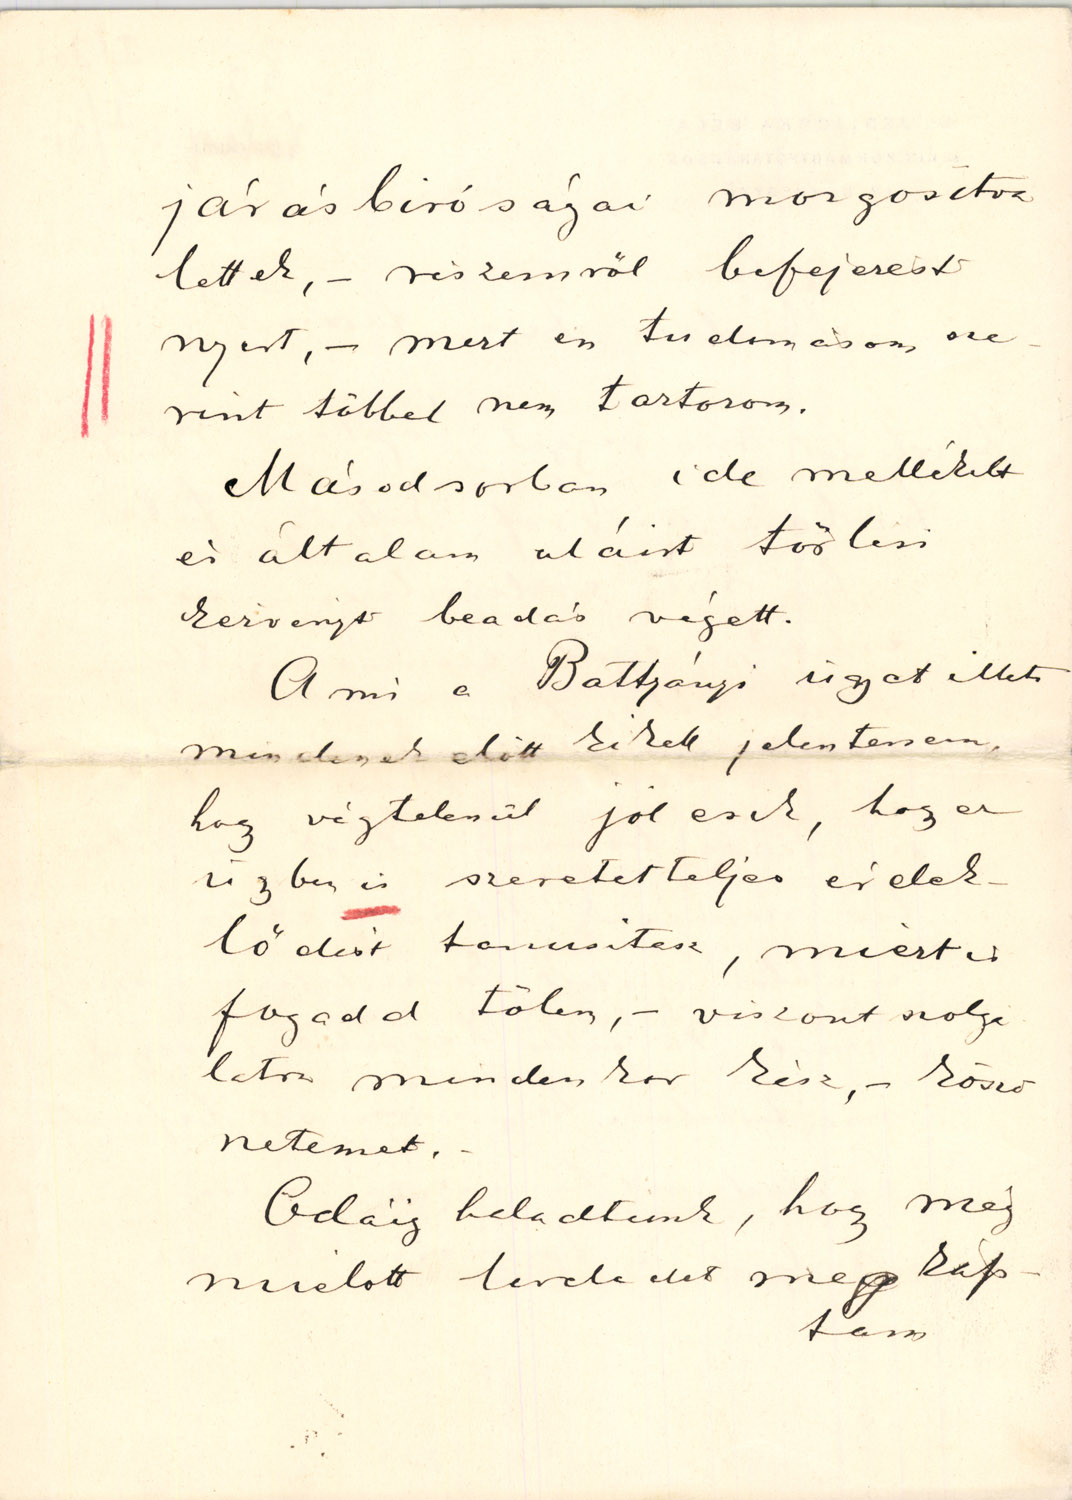 járásbiróságai morgositva
lettek, – részemről befejezést
nyert, – mert én tudomásom sze-
rint többel nem tartozom.
Másodsorban ide mellékelt
és általam aláirt törlesi
kérvényt beadás végett.
Ami a Battyányi ügyet illeti
mindenek előtt ki kell jelentenem,
hogy végtelenül jól esik, hogy ez
ügyben is szeretetteljes érdek-
lődést tanusitasz, miért is
fogadd tőlem, – viszont szolgá
latra mindenkor kész, – köszö
netemet. –
Odáig haladtunk, hogy még
mielőtt leveledet meg kap-
tam